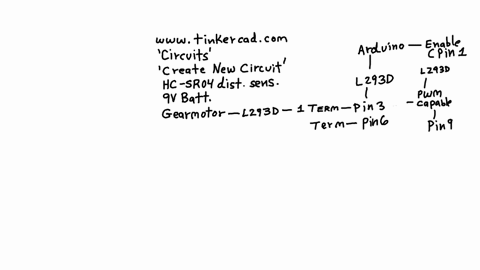 www.tinkercad.com
'Circuits'
'Create New Circuit'
HC-SR04 dist. sens.
9V Batt.
Gearmotor — L293D — 1 Term — Pin 3
Term — Pin6
Arduino — Enable
(Pin 1
L293D
L293D
PWM
- capable
Pin 9